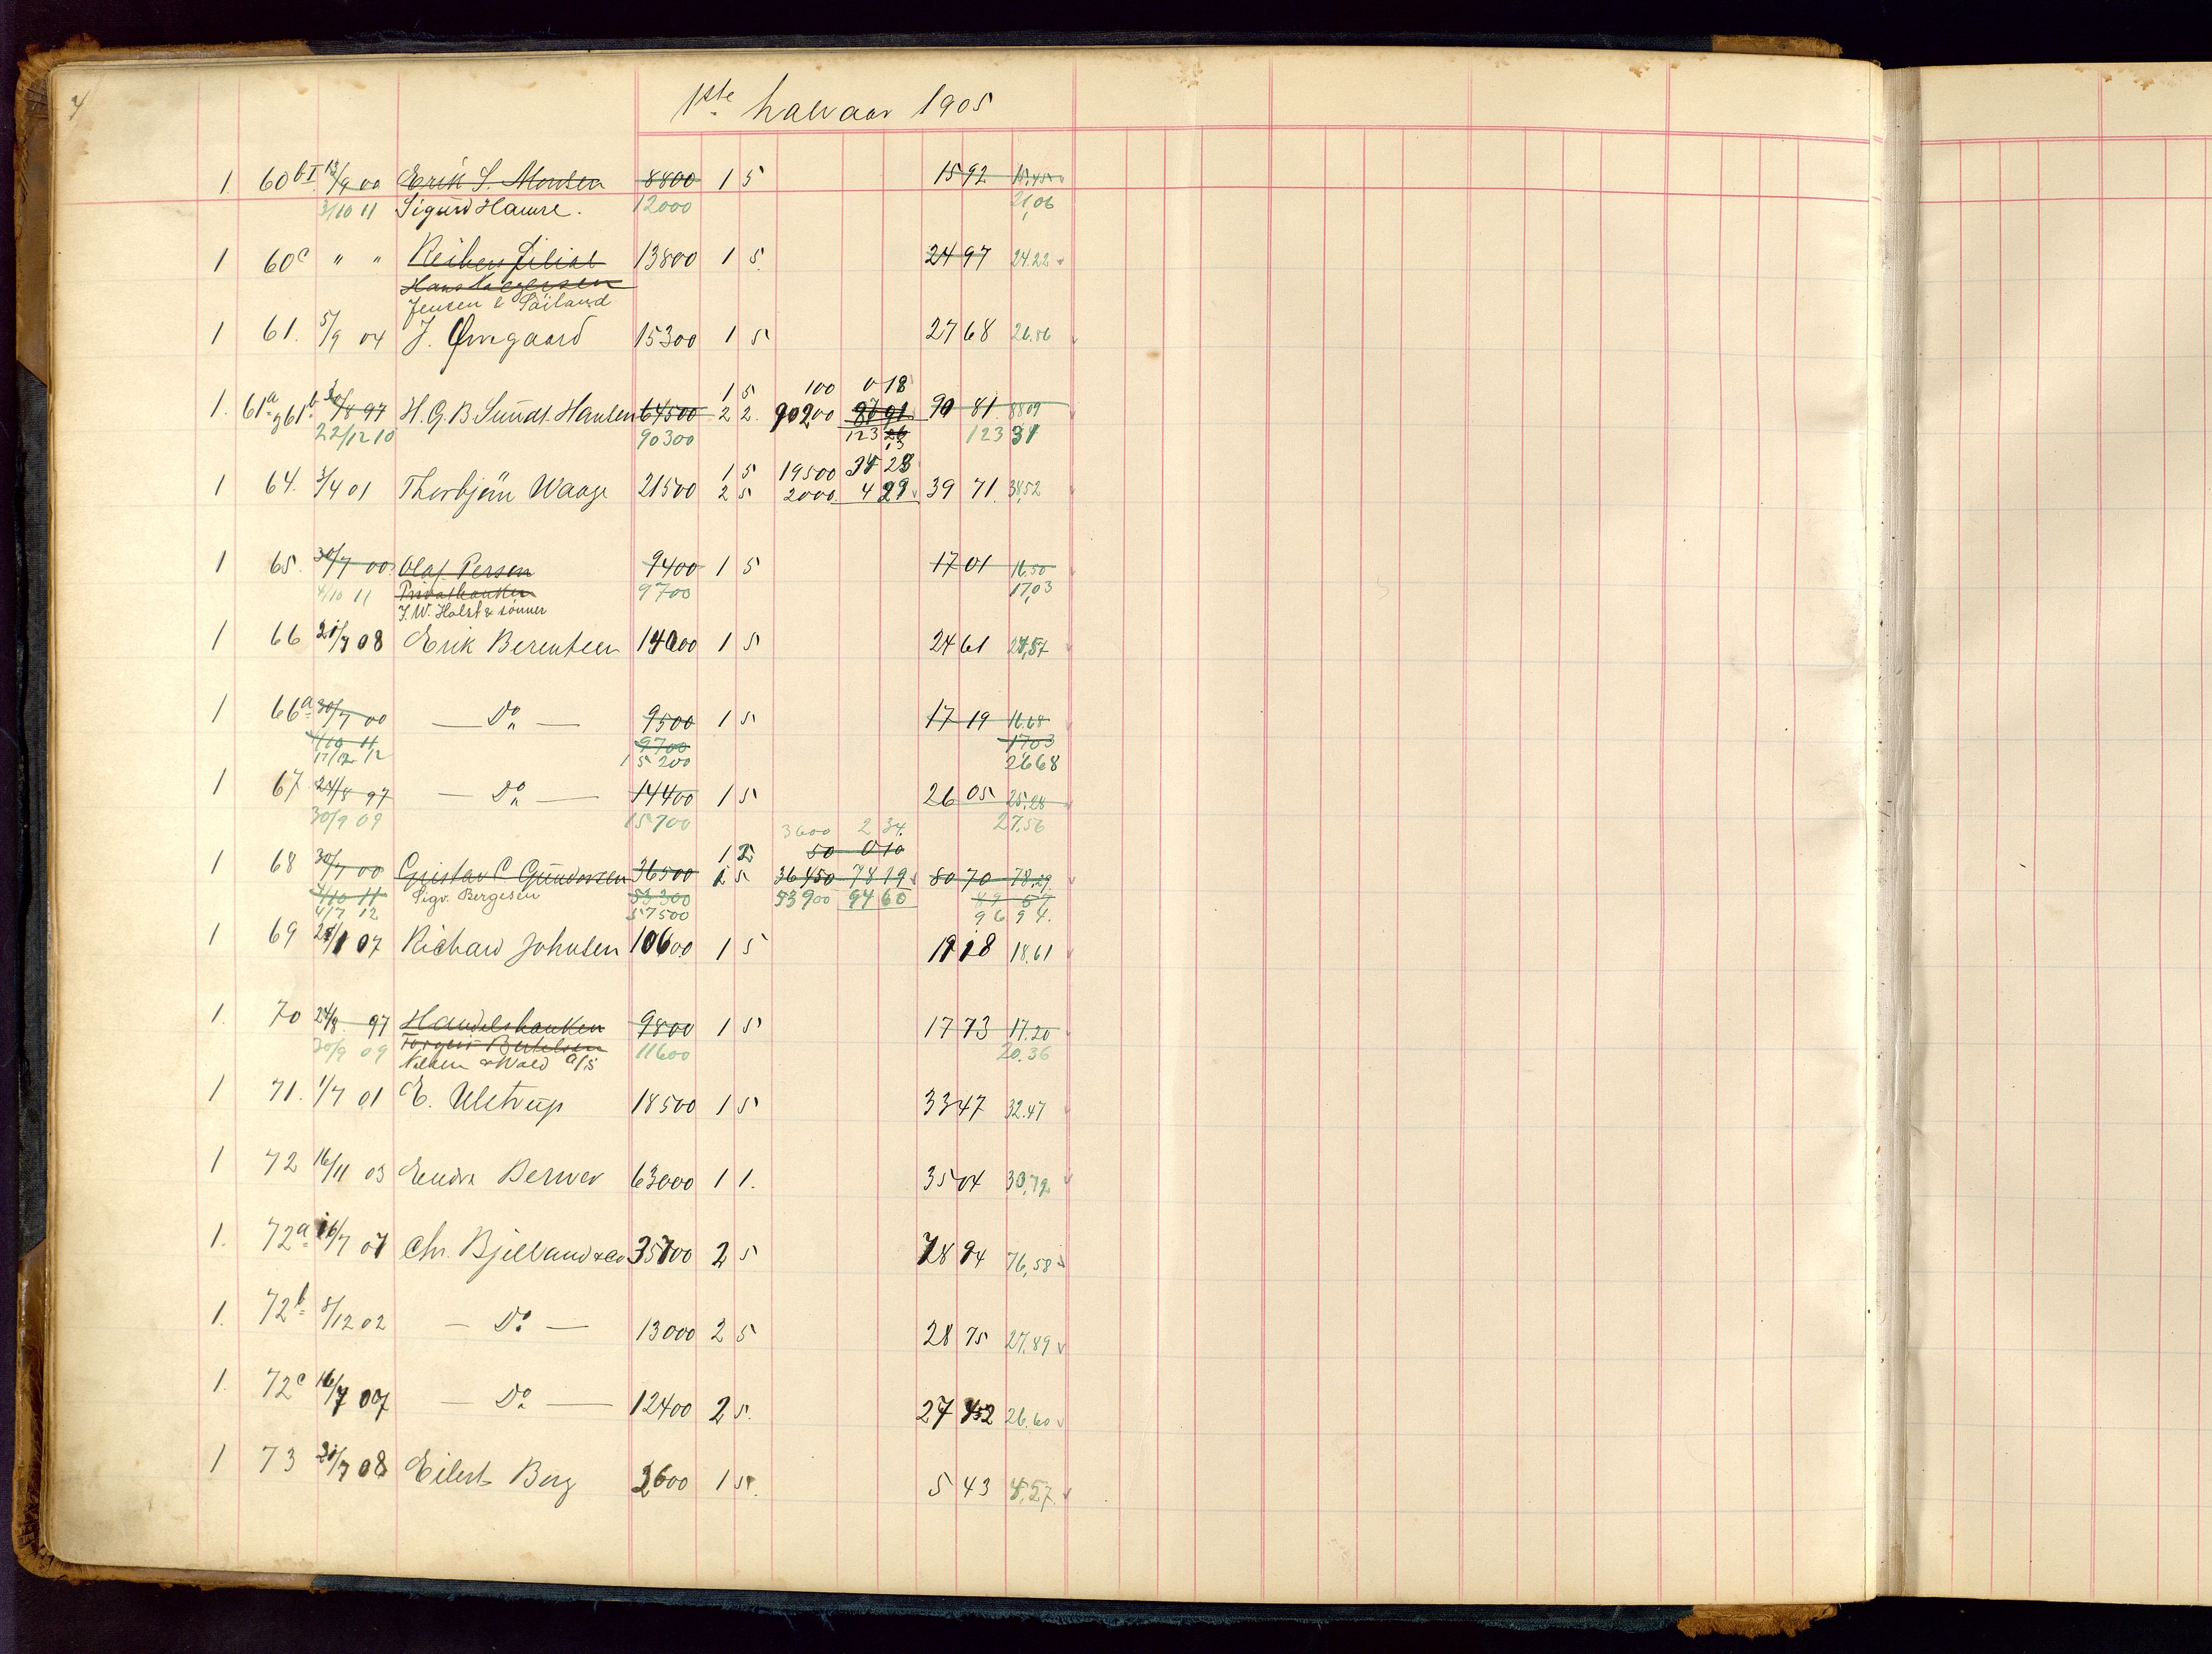 1ste halvaar 1905
1. 60 b I 13/9 00 Erik S. Monsen 8800 1 5 15 92 15.45
3/10 11 Sigurd Hamre. 12000 21,06
1 60c " " Reihers Filial 13800 1 5. 24 97 24.22
Jensen & Töiland
1 61. 5/9 04 J. Qvregaard 15300 1 5 27 68 26.86
1 5 100 0 18
1. 61a 61b 30/8 97 H. G. B. Sundt. Hansen 64500 2 2. 90200 90 81 88 09
22/12 10 90300 123 123 31
1 5 19500 34 28
1 64. 3/4 01 Thorbjörn Waage 21500 2 5 2000 4 29 39 71. 38,52
1 65. 30/7 00 Olaf Person 9400 1 5 17 01 16.50
4/10 11 Privatbanken 9700 17,03
J. W. Holst & sönner
1 66 21/7 08 Erik Berentsen 14000 1 5 24 61 24,57
1 66a 30/7 00 — Do — 9500 1 5 17 19 16.68
4/10 11 9700 1703
17/12 12 15200 2668
1 67 24/8 97 — Do — 14400 1 5 26 05 25.28
30/9 09 15700 27.56
3600 2 34.
1 5 50 0 10
1 68 30/7 00 Gustav C Gundersen 36500 2 5 36450 78 19 80 70 78.29
4/10 11 Sigv. Bergesen 53300 53900 94 60 89 67
4/7 12 57500 96 94.
1 69 21/1 07 Richard Johnsen 10600 1 5 19 18 18.61
1. 70 24/8 97 Handelsbanken 9800 1 5 17 73 17.20
30/9 09 Torgeir Bertelsen 11600 20.36
Nielsen & Wold A/S
1 71. 1/7 01 E. Ulstrup 18500 1 5 33 47 32.47
1 72 16/11 03 Endre Berner 63000 1 1. 35 04 30,72
1. 72a 16/7 07 Chr. Bjelland & Co 35700 2 5 78 94 76,58
1. 72b 8/12 02 — Do — 13000 2 5 28 75 27.89
1. 72c 16/7 07 — Do — 12400 2 5. 27 42 26.60
1 73 21/7 08 Eilert Berg 2600 1 5. 5 43 4,57